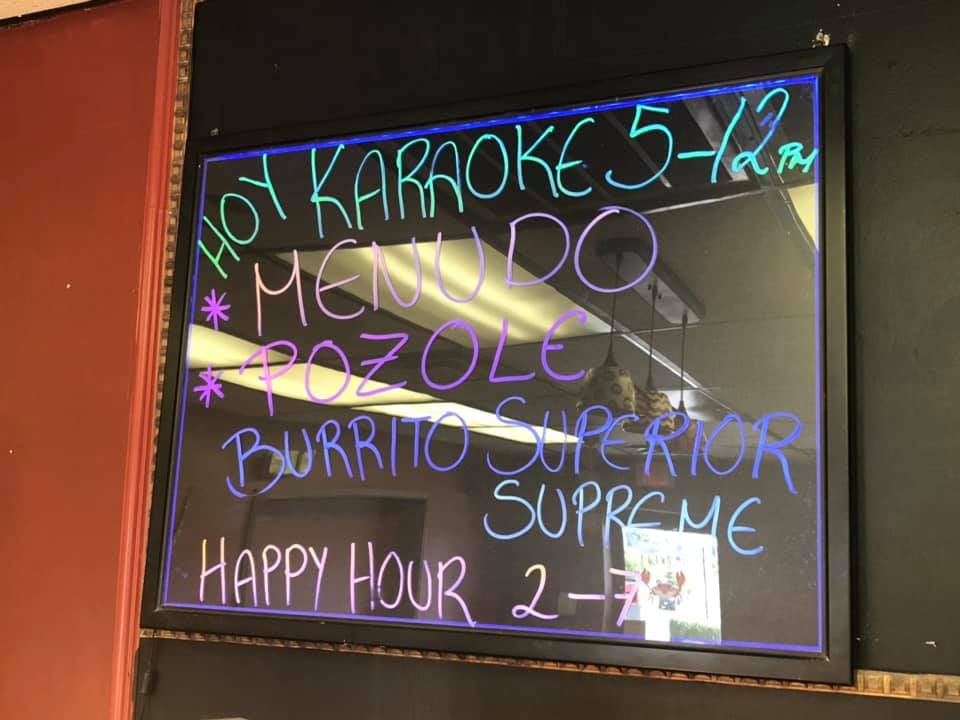 HOY KARAOKE 5-12 PM
* MENUDO
* POZOLE
BURRITO SUPERIOR
SUPREME
HAPPY HOUR 2-7